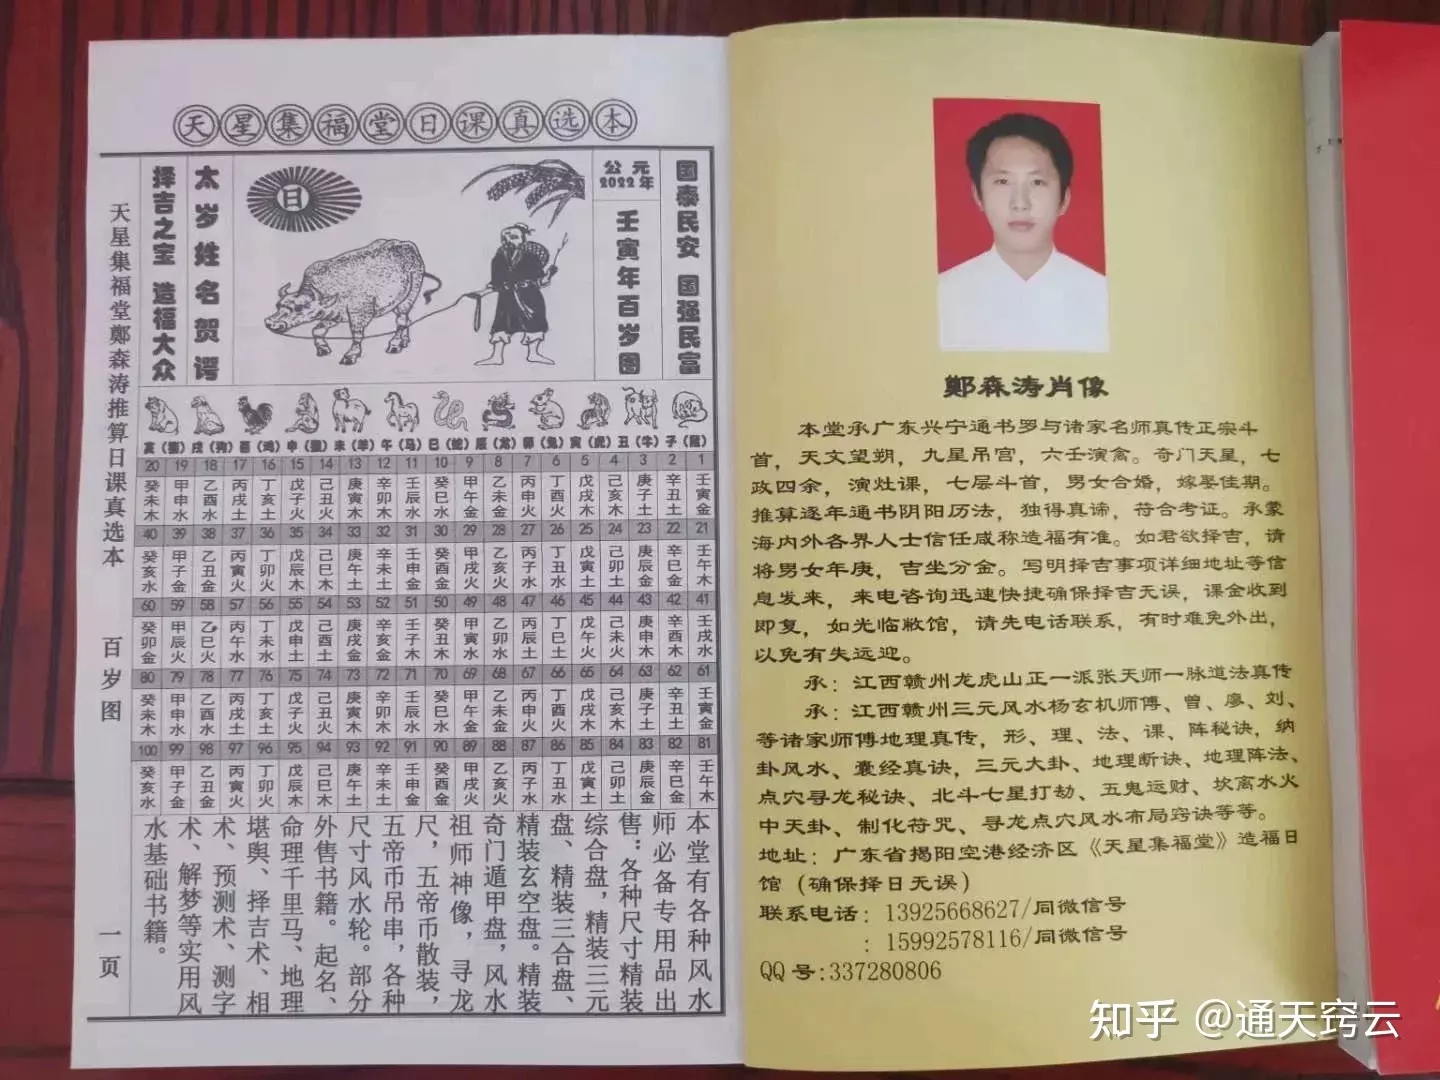 天星集福堂日课真选本
国泰民安 国强民富
公元
2022年
壬寅年百岁图
日
太岁姓名贺谔
择吉之宝 造福大众
天星集福堂鄭森涛推算日课真选本 百岁图 一页
亥（豬）戌（狗）酉（鸡）申（猴）未（羊）午（马）巳（蛇）辰（龙）卯（兔）寅（虎）丑（牛）子（鼠）
20 19 18 17 16 15 14 13 12 11 10 9 8 7 6 5 4 3 2 1
癸未木 甲申水 乙酉水 丙戌土 丁亥土 戊子火 己丑火 庚寅木 辛卯木 壬辰水 癸巳水 甲午金 乙未金 丙申火 丁酉火 戊戌木 己亥木 庚子土 辛丑土 壬寅金
40 39 38 37 36 35 34 33 32 31 30 29 28 27 26 25 24 23 22 21
癸亥水 甲子金 乙丑金 丙寅火 丁卯火 戊辰木 己巳木 庚午土 辛未土 壬申金 癸酉金 甲戌火 乙亥火 丙子水 丁丑水 戊寅土 己卯土 庚辰金 辛巳金 壬午木
60 59 58 57 56 55 54 53 52 51 50 49 48 47 46 45 44 43 42 41
癸卯金 甲辰火 乙巳火 丙午水 丁未水 戊申土 己酉土 庚戌金 辛亥金 壬子木 癸丑木 甲寅水 乙卯水 丙辰土 丁巳土 戊午火 己未火 庚申木 辛酉木 壬戌水
80 79 78 77 76 75 74 73 72 71 70 69 68 67 66 65 64 63 62 61
癸未木 甲申水 乙酉水 丙戌土 丁亥土 戊子火 己丑火 庚寅木 辛卯木 壬辰水 癸巳水 甲午金 乙未金 丙申火 丁酉火 戊戌木 己亥木 庚子土 辛丑土 壬寅金
100 99 98 97 96 95 94 93 92 91 90 89 88 87 86 85 84 83 82 81
癸亥水 甲子金 乙丑金 丙寅火 丁卯火 戊辰木 己巳木 庚午土 辛未土 壬申金 癸酉金 甲戌火 乙亥火 丙子水 丁丑水 戊寅土 己卯土 庚辰金 辛巳金 壬午木
本堂有各种风水
师必备专用品出
售：各种尺寸精装
综合盘，精装三元
盘、精装三合盘、
精装玄空盘。精装
奇门遁甲盘，风水
祖师神像，寻龙
尺，五帝币散装，
五帝币吊串，各种
尺寸风水轮。部分
外售书籍。起名、
命理千里马、地理
堪舆、择吉术、相
术、预测术、测字
术、解梦等实用风
水基础书籍。
鄭森涛肖像
本堂承广东兴宁通书罗与诸家名师真传正宗斗
首，天文望朔，九星吊宫，六壬演禽。奇门天星，七
政四余，演灶课，七层斗首，男女合婚，嫁娶佳期。
推算逐年通书阴阳历法，独得真谛，符合考证。承蒙
海内外各界人士信任咸称造福有准。如君欲择吉，请
将男女年庚，吉坐分金。写明择吉事项详细地址等信
息发来，来电咨询迅速快捷确保择吉无误，课金收到
即复，如光临敝馆，请先电话联系，有时难免外出，
以免有失远迎。
承：江西赣州龙虎山正一派张天师一脉道法真传
承：江西赣州三元风水杨玄机师傅、曾、廖、刘、
等诸家师傅地理真传，形、理、法、课、阵秘诀，纳
卦风水、囊经真诀，三元大卦、地理断诀、地理阵法、
点穴寻龙秘诀、北斗七星打劫、五鬼运财、坎离水火
中天卦、制化符咒、寻龙点穴风水布局窍诀等等。
地址：广东省揭阳空港经济区《天星集福堂》造福日
馆（确保择日无误）
联系电话：13925668627/同微信号
：15992578116/同微信号
QQ号:337280806
知乎 @通天窍云